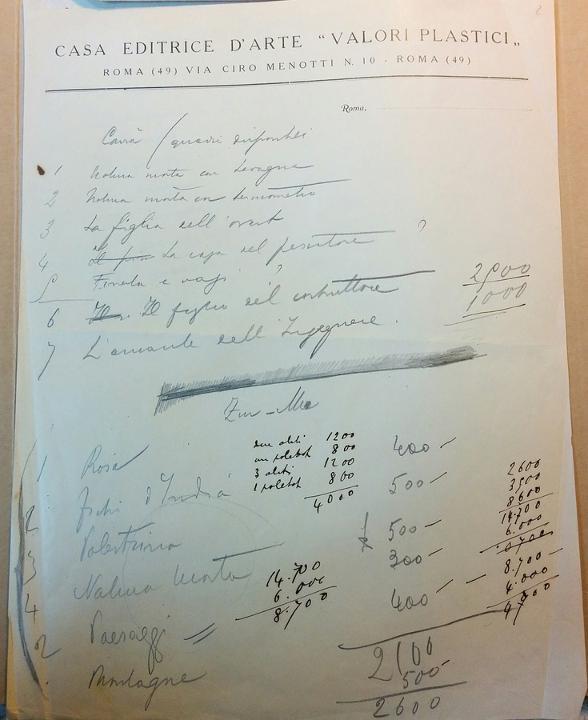 CASA EDITRICE D'ARTE "VALORI PLASTICI"
ROMA (49) VIA CIRO MENOTTI N. 10 - ROMA (49)
Roma,
Carrà (quadri disponibili
1 Natura morta con
2 Natura morta con termometro
3 La figlia dell'ovest
4 La casa del pescatore ?
5 Finestra e vasi ?
6 Il figlio del costruttore
2500
1000
7 L'amante dell'Ingegnere.
1 Rose 400-
due abiti 1200
un paletot 800
3 abiti 1200
1 paletot 800
4000
2 Fichi d'India 500-
2600
3500
8600
14700
6.000
3 Palestrina 500-
8.700-
4.000
4 Natura morta 300-
14.700
6.000
8.700
2 Paesaggi 400-
Montagne
2100
500-
2600